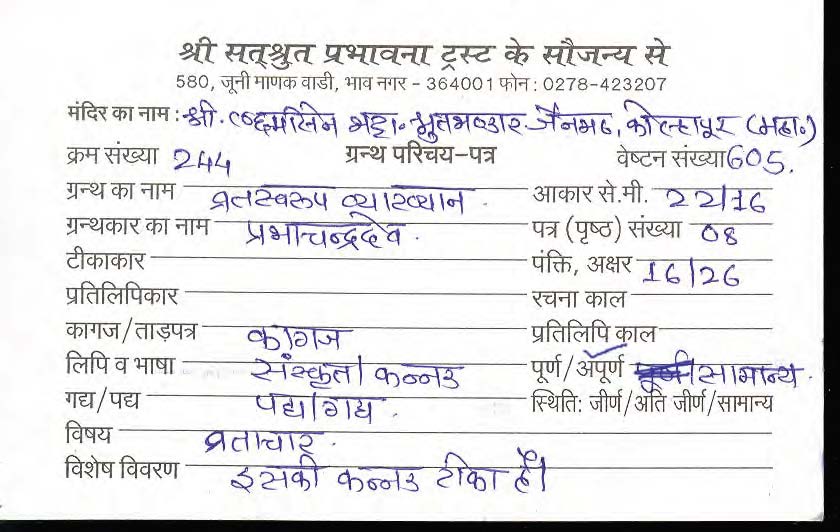 श्री सत्श्रुत प्रभावना ट्रस्ट के सौजन्य से
580, जूनी माणक वाडी, भाव नगर - 364001 फोन : 0278-423207
मंदिर का नाम : श्री. लक्ष्मीसेन भट्टा. श्रुतभण्डार जैनमठ, कोल्हापूर (महा.)
क्रम संख्या 244 ग्रन्थ परिचय-पत्र वेष्टन संख्या 605.
ग्रन्थ का नाम व्रतस्वरूप व्याख्यान . आकार से.मी. 22/16
ग्रन्थकार का नाम प्रभाचन्द्रदेव . पत्र (पृष्ठ) संख्या 08
टीकाकार पंक्ति, अक्षर 16/26
प्रतिलिपिकार रचना काल
कागज/ताड़पत्र कागज प्रतिलिपि काल
लिपि व भाषा संस्कृत/कन्नड पूर्ण/अपूर्ण /सामान्य .
गद्य/पद्य पद्य/गद्य . स्थिति: जीर्ण/अति जीर्ण/सामान्य
विषय व्रताचार .
विशेष विवरण इसकी कन्नड टीका है।